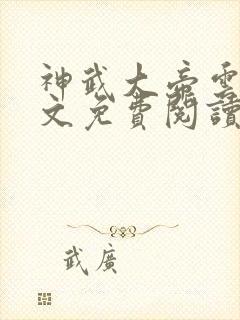 神武大帝雲
文免費閱讀
武廣